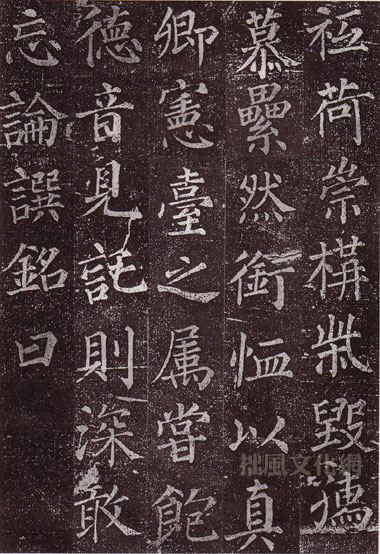 祗荷崇構柴毀孺
慕纍然銜恤以真
卿憲臺之属嘗飽
德音見託則深敢
忘論譔銘曰
拙風文化網